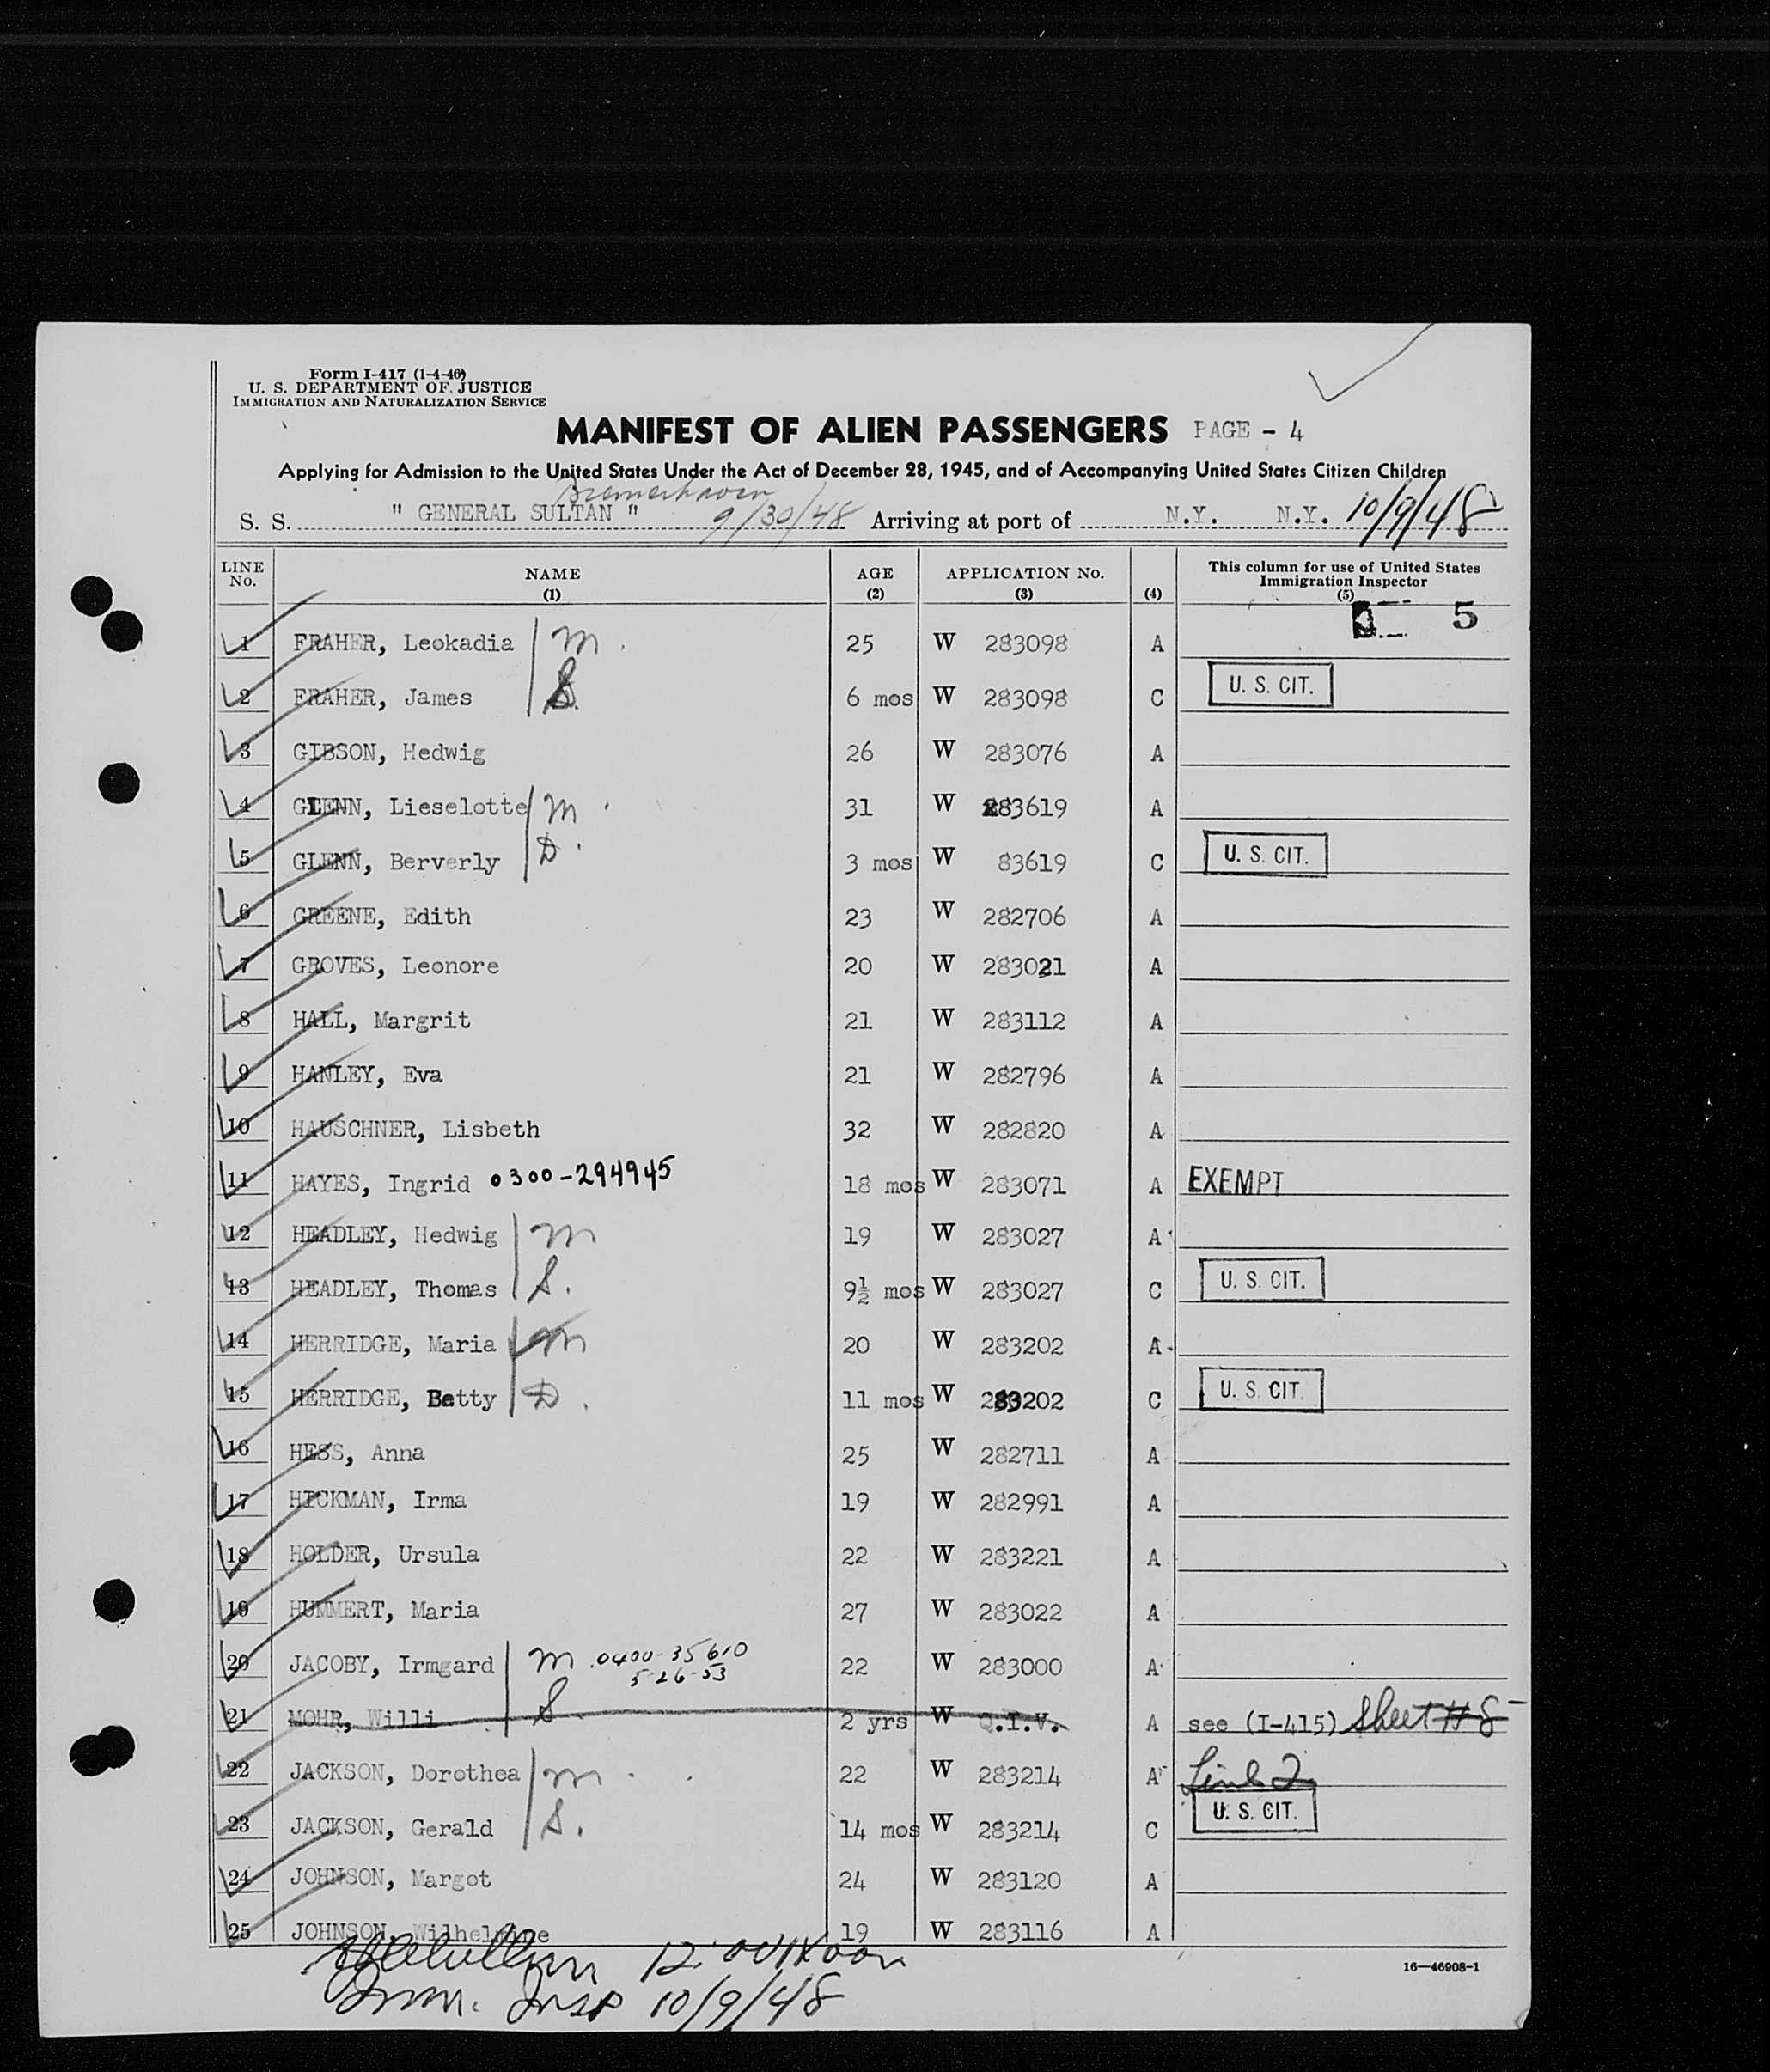 Form I-417 (1-4-46)
U. S. DEPARTMENT OF JUSTICE
IMMIGRATION AND NATURALIZATION SERVICE
MANIFEST OF ALIEN PASSENGERS PAGE - 4
Applying for Admission to the United States Under the Act of December 28, 1945, and of Accompanying United States Citizen Children
Bremerhaven
S. S. " GENERAL SULTAN " 9/30/48 Arriving at port of N.Y. N.Y. 10/9/48
LINE No. NAME (1) AGE (2) APPLICATION No. (3) (4) This column for use of United States Immigration Inspector (5)
5
1 FRAHER, Leokadia M. 25 W 283098 A
2 FRAHER, James S. 6 mos W 283098 C U. S. CIT.
3 GIBSON, Hedwig 26 W 283076 A
4 GLENN, Lieselotte M 31 W 283619 A
5 GLENN, Berverly D. 3 mos W 83619 C U. S. CIT.
6 GREENE, Edith 23 W 282706 A
7 GROVES, Leonore 20 W 283021 A
8 HALL, Margrit 21 W 283112 A
9 HANLEY, Eva 21 W 282796 A
10 HAUSCHNER, Lisbeth 32 W 282820 A
11 HAYES, Ingrid 0300-294945 18 mos W 283071 A EXEMPT
12 HEADLEY, Hedwig M 19 W 283027 A
13 HEADLEY, Thomas S. 9½ mos W 283027 C U. S. CIT.
14 HERRIDGE, Maria M 20 W 283202 A
15 HERRIDGE, Betty D. 11 mos W 283202 C U. S. CIT.
16 HESS, Anna 25 W 282711 A
17 HICKMAN, Irma 19 W 282991 A
18 HOLDER, Ursula 22 W 283221 A
19 HUMMERT, Maria 27 W 283022 A
20 JACOBY, Irmgard M 0400-35610 22 W 283000 A
5-26-53
21 MOHR, Willi S 2 yrs W Q.I.V. A see (I-415) Sheet # 8
22 JACKSON, Dorothea M 22 W 283214 A Line 2
23 JACKSON, Gerald S. 14 mos W 283214 C U. S. CIT.
24 JOHNSON, Margot 24 W 283120 A
25 JOHNSON, Wilhelmine 19 W 283116 A
12:00 Noon
Imm. Insp 10/9/48
16—46908-1